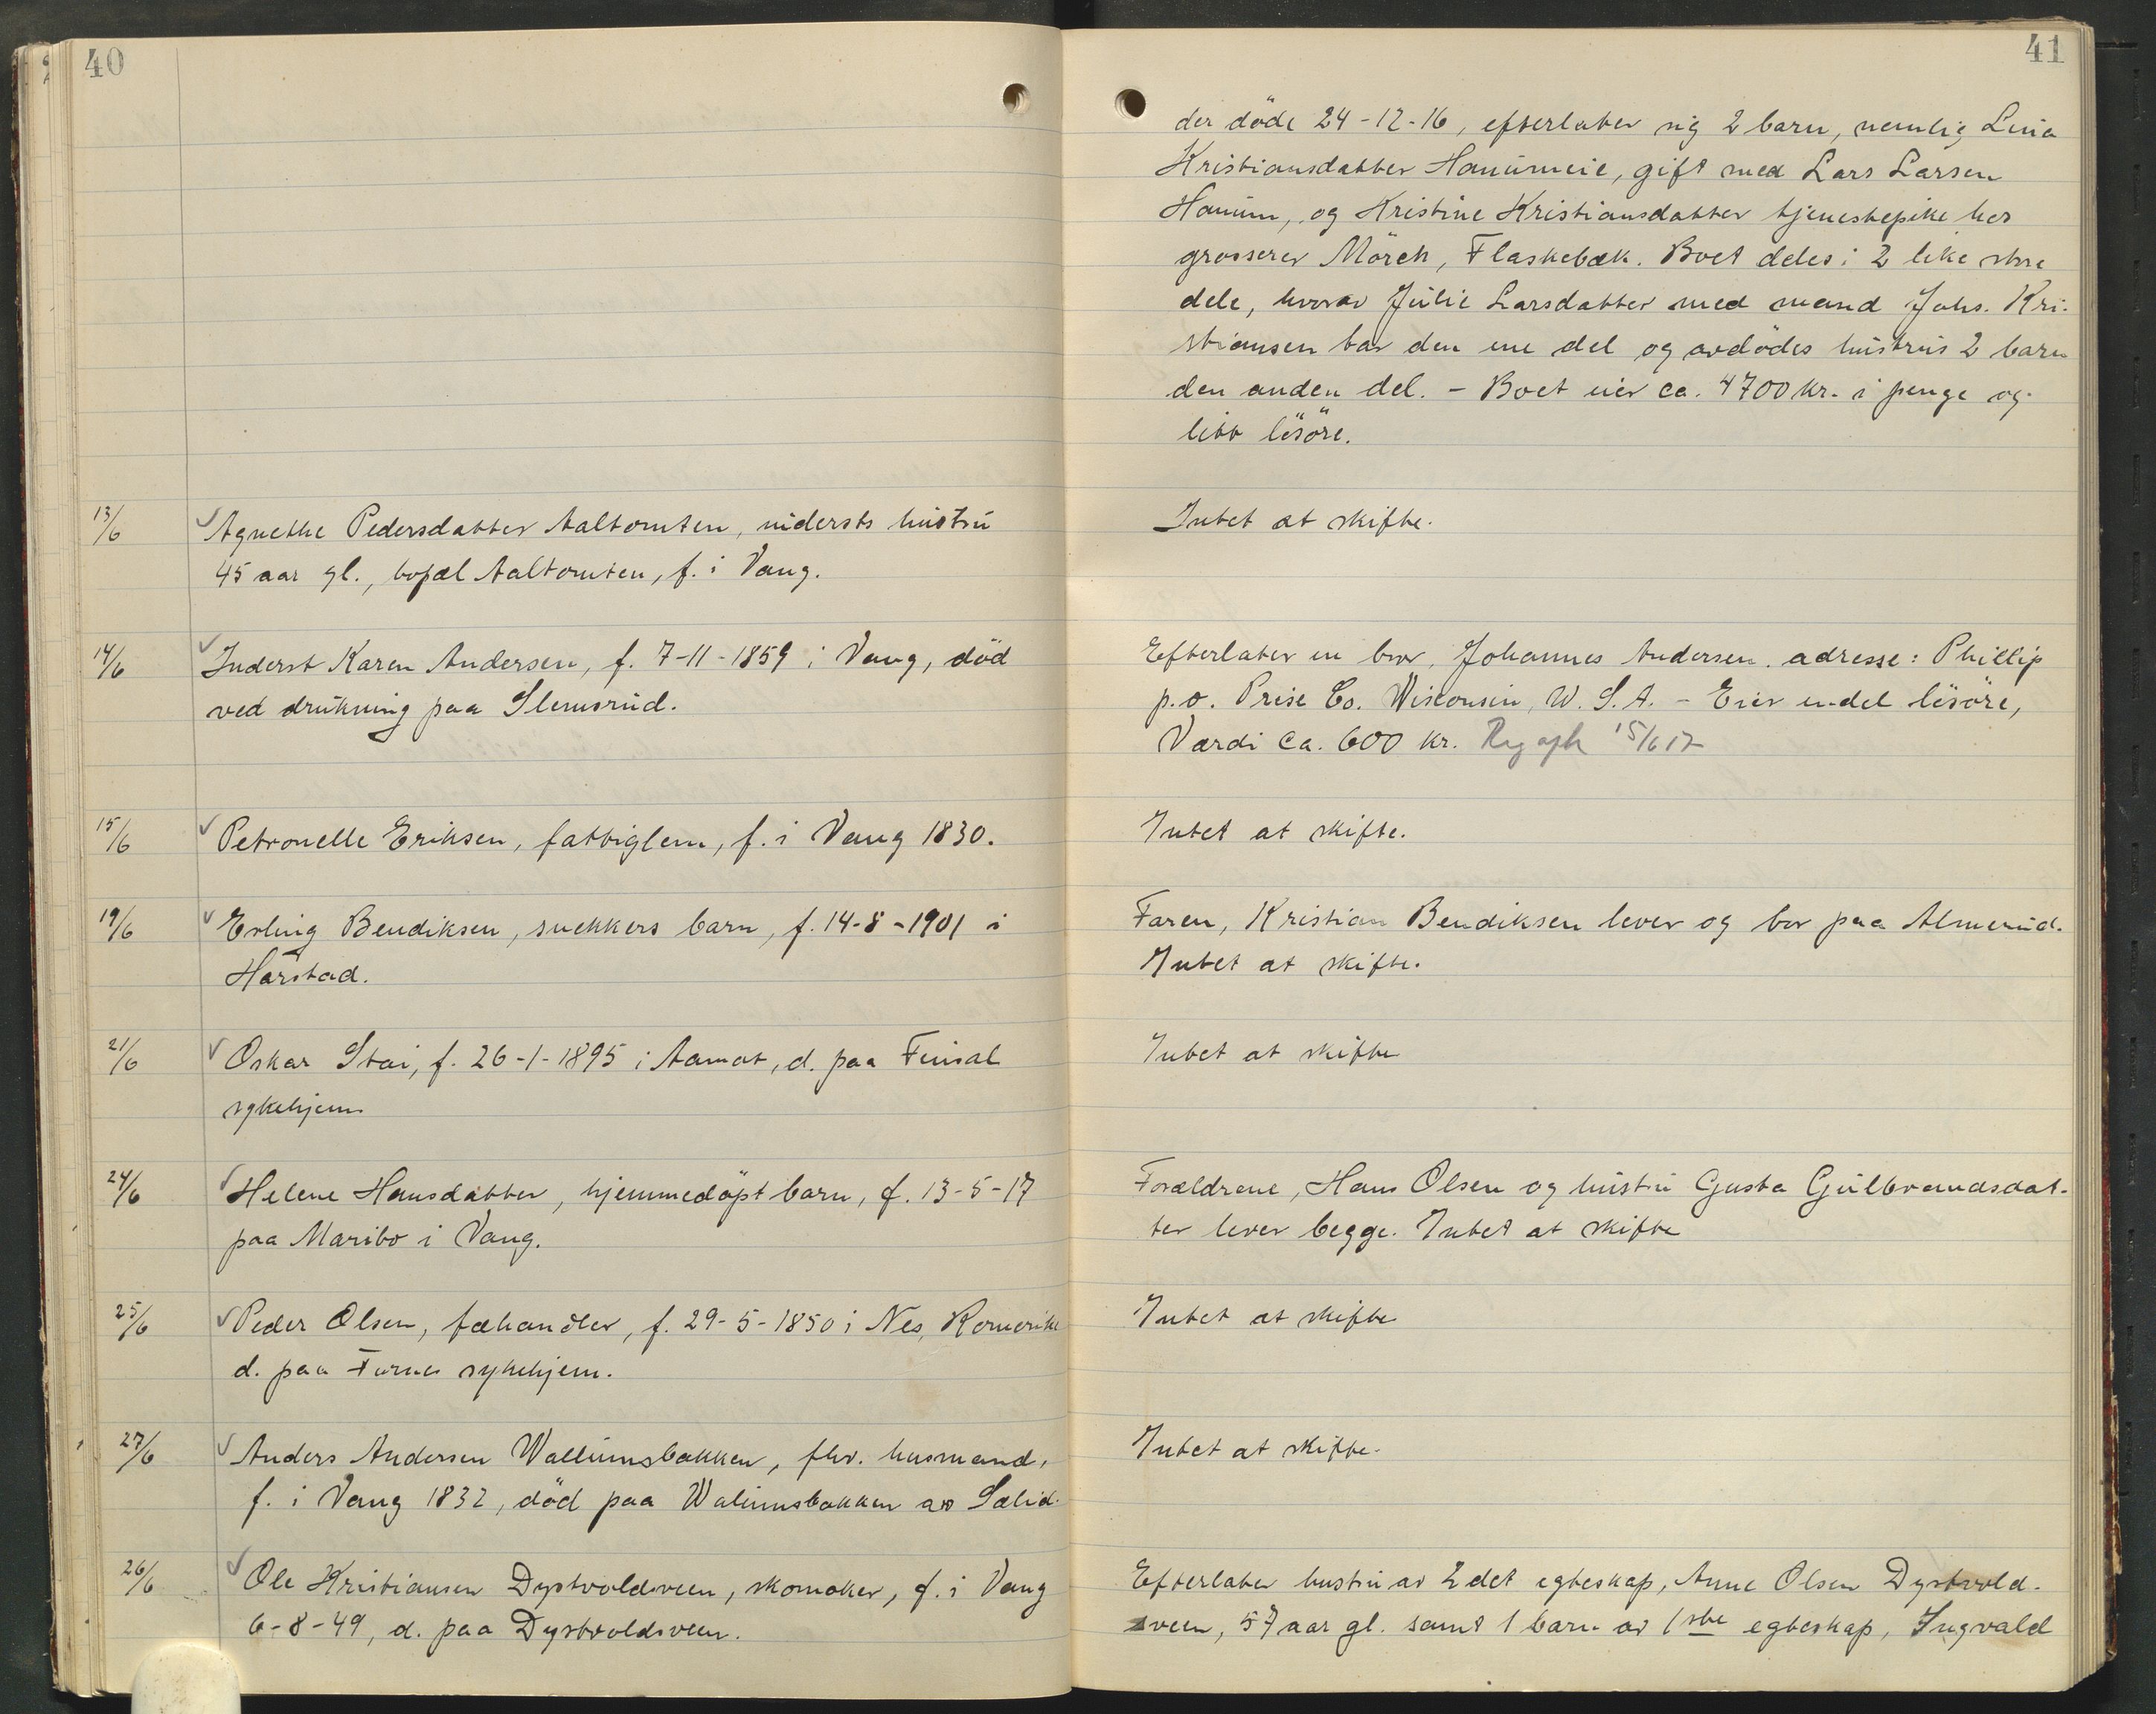 40
13/6 Agnethe Pedersdatter Aaltomten, indersts hustru
45 aar gl., bopæl Aaltomten, f. i Vang.
14/6 Inderst Karen Andersen, f. 7-11-1859 i Vang, död
ved drukning paa Slemsrud.
15/6 Petronelle Eriksen, fattiglem, f. i Vang 1830.
19/6 Erling Bendiksen, snekkers barn, f. 14-8-1901 i
Harstad.
21/6 Oskar Stai, f. 26-1-1895 i Aamot, d. paa Finsal
sykehjem
24/6 Helene Hansdatter, hjemmedöpt barn, f. 13-5-17
paa Maribo i Vang.
25/6 Peder Olsen, fæhandler, f. 29-5-1850 i Nes, Romerike
d. paa Furnes sykehjem.
27/6 Anders Andersen Wallumsbakken, fhv. husmand,
f. i Vang 1832, död paa Walumsbakken av Sælid.
26/6 Ole Kristiansen Dystvoldsveen, skomaker, f. i Vang
6-8-49, d. paa Dystvoldsveen.
41
der döde 24-12-16, efterlater sig 2 barn, nemlig Lina
Kristiansdatter Hanumeie, gift med Lars Larsen
Hanum, og Kristine Kristiansdatter tjenestepike hos
grosserer Mörch, Flaskebæk. Boet deles i 2 like store
dele, hvorav Julie Larsdatter med mand Johs. Kri-
stiansen tar den ene del og avdödes hustrus 2 barn
den anden del. - Boet eier ca. 4700 kr. i penge og
litt lösöre.
Intet at skifte.
Efterlater en bror, Johannes Andersen. adresse: Phillip
p.o. Prise Co. Wisconsin, W. S. A. - Eier en del lösöre,
Værdi ca. 600 kr. 15/6 17
Intet at skifte.
Faren, Kristian Bendiksen lever og bor paa Almerud.
Intet at skifte.
Intet at skifte
Forældrene, Hans Olsen og hustru Gusta Gulbrandsdat-
ter lever begge. Intet at skifte
Intet at skifte
Intet at skifte.
Efterlater hustru av 2det egteskap, Anne Olsen Dystvold-
sveen, 57 aar gl. samt 1 barn av 1ste egteskap, Ingvald